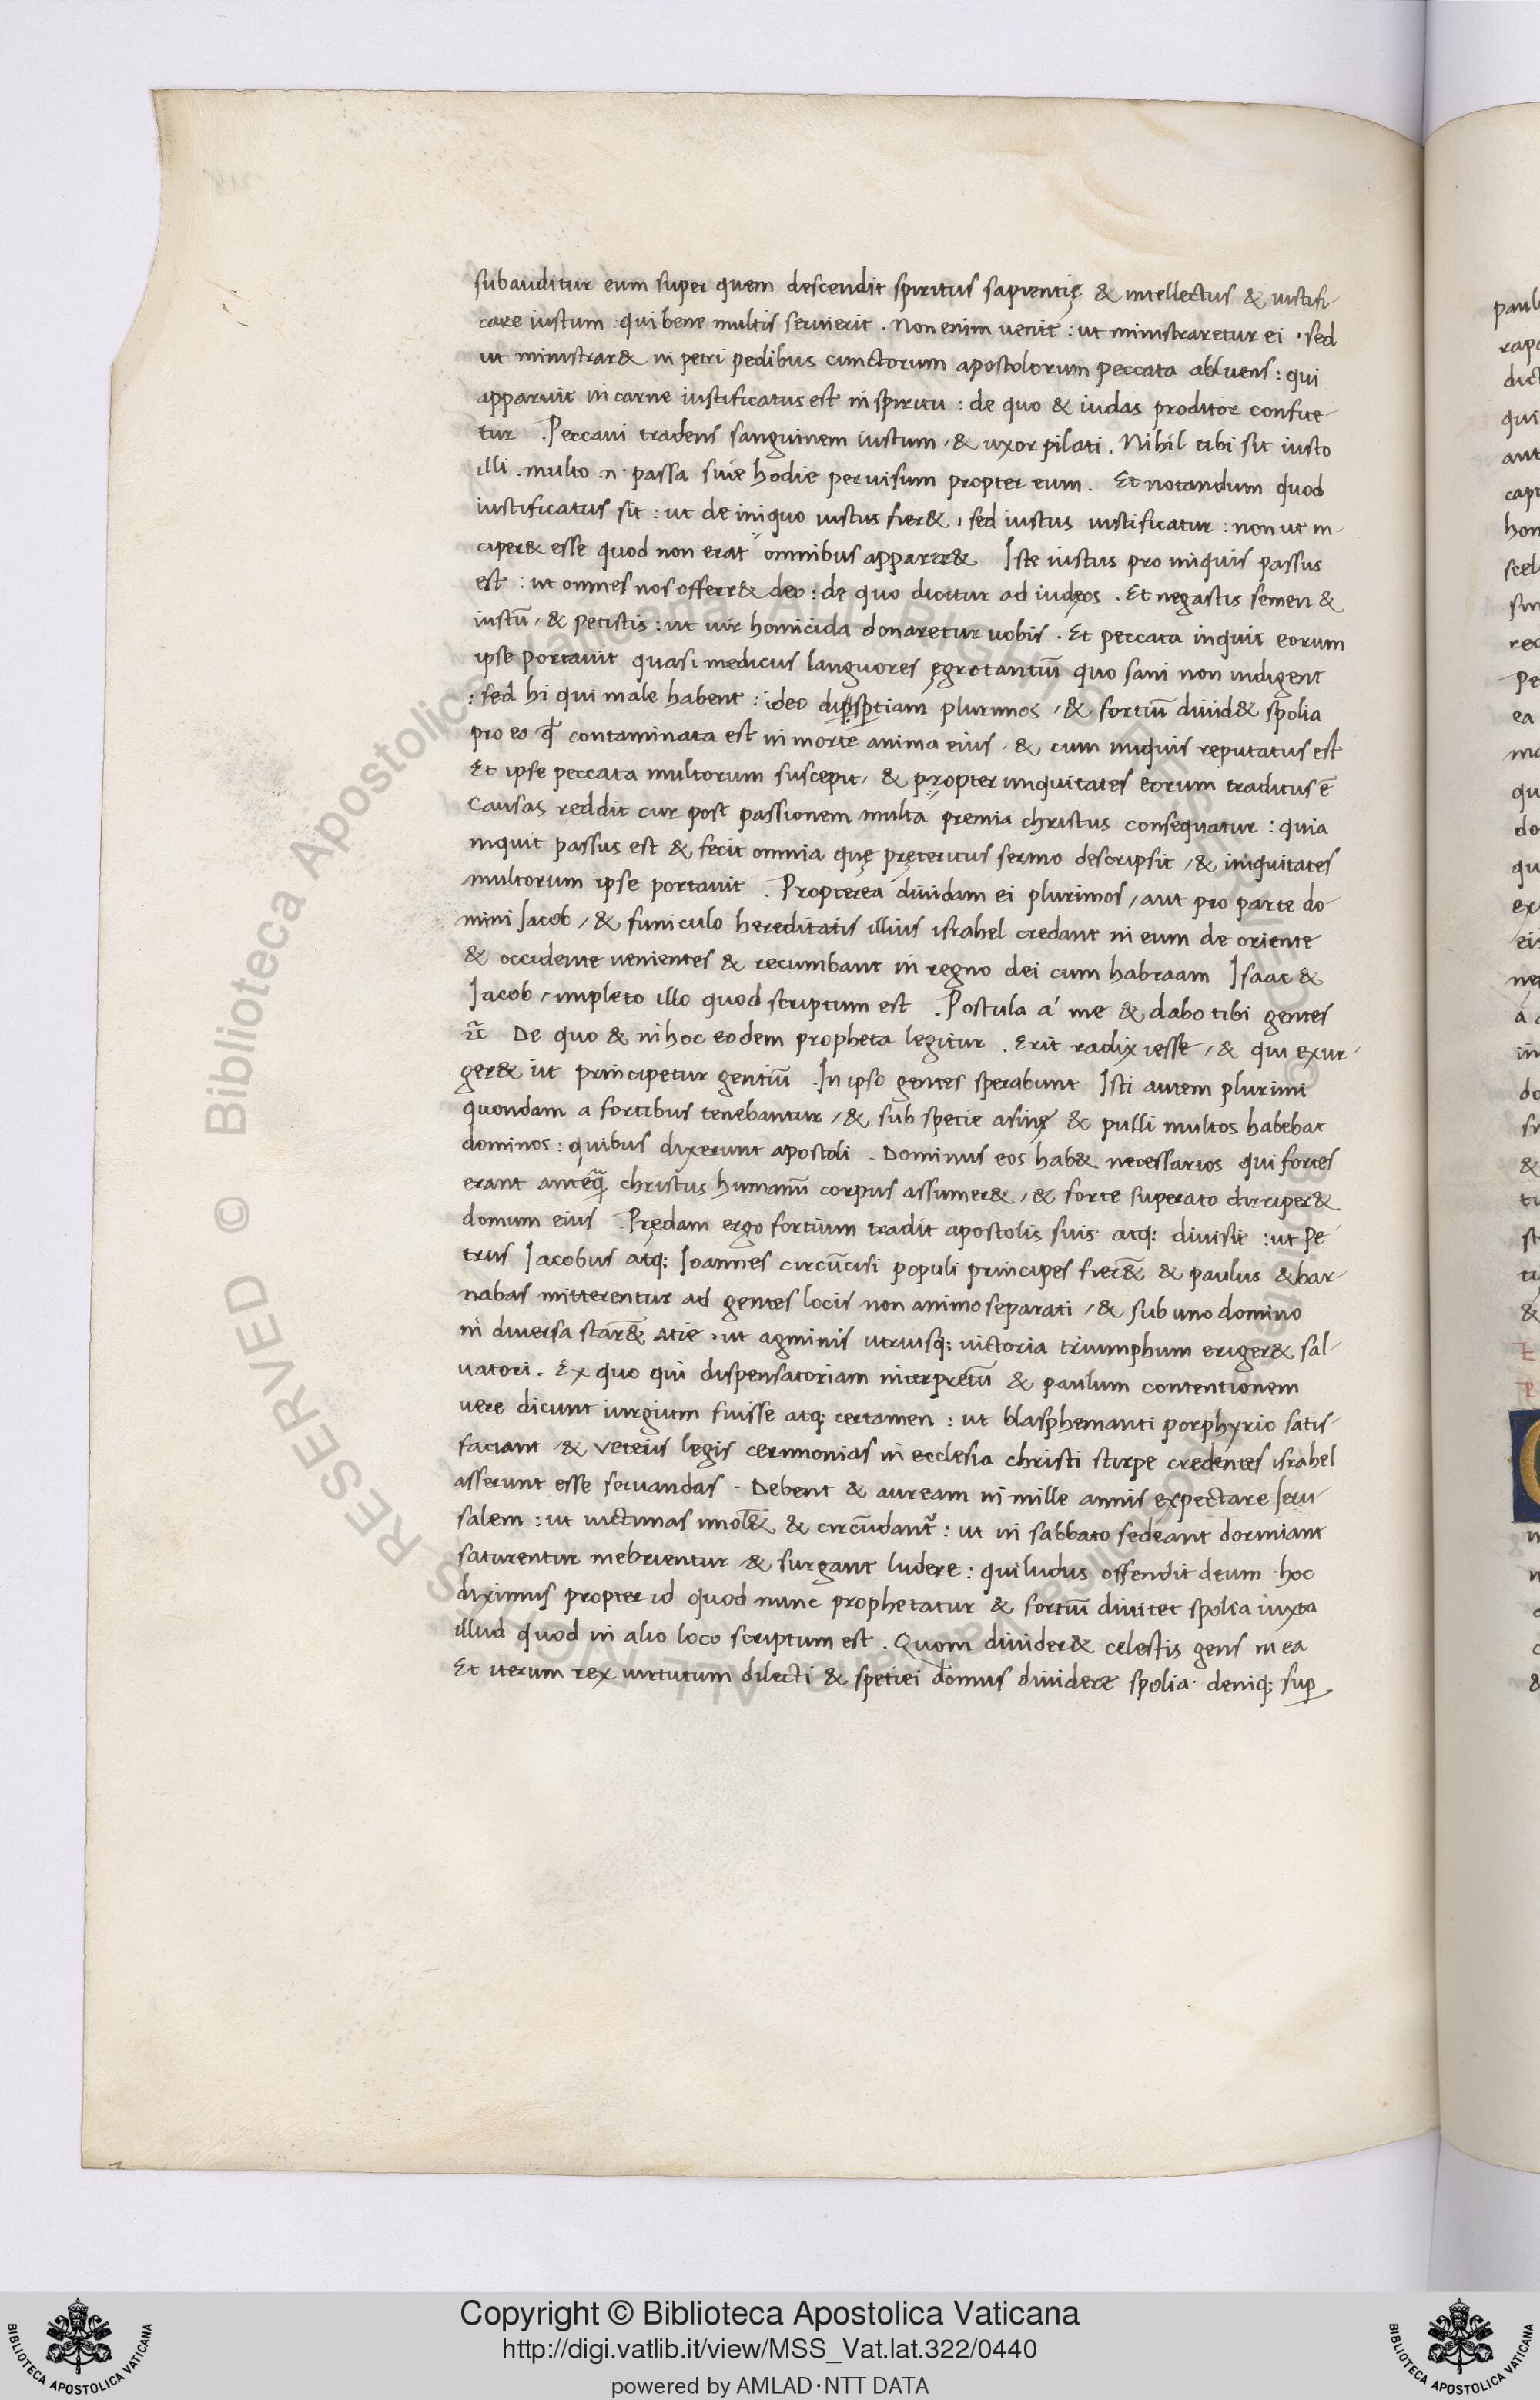 subauditur eum super quem descendit spiritus sapientię & intellectus & iustifi-
care iustum qui bene multis servierit . Non enim venit : ut ministraretur ei , sed
ut ministrar& in petri pedibus cunctorum apostolorum peccata abluens : qui
apparuit in carne iustificatus est in spiritu : de quo & iudas proditor confite-
tur . Peccavi tradens sanguinem iustum , & uxor pilati . Nihil tibi sit iusto
illi . multo .n. passa sum hodie per visum propter eum . Et notandum quod
iustificatus sit : ut de iniquo iustus fier& , sed iustus iustificatur : non ut in-
ciper& esse quod non erat omnibus apparer& Iste iustus pro iniquis passus
est : ut omnes nos offerr& deo : de quo dicitur ad iudęos . Et negastis semen &
iustū , & petistis : ut vir homicida donaretur vobis . Et peccata inquit eorum
ipse portavit quasi medicus languores ęgrotantiū quo sani non indigent
: sed hi qui male habent : ideo plurimos , & fortiū divid& spolia
pro eo contaminata est in morte anima eius . & cum iniquis reputatus est
Et ipse peccata multorum suscepit , & propter iniquitates eorum traditus ē
Causas reddit cur post passionem multa premia christus consequatur : quia
inquit passus est & fecit omnia quę pręteritus sermo descripsit , & iniquitates
multorum ipse portavit . Propterea dividam ei plurimos , aut pro parte do-
mini Jacob , & funiculo hereditatis illius israhel credant in eum de oriente
& occidente venientes & recumbant in regno dei cum habraam Isaac &
Jacob , impleto illo quod scriptum est . Postula a' me & dabo tibi gentes
De quo & in hoc eodem propheta legitur . Erit radix iesse , & qui exur-
ger& ut principetur gentiū . In ipso gentes sperabunt Isti autem plurimi
quondam a fortibus tenebantur , & sub specie asinę & pulli multos habebat
dominos : quibus dixerunt apostoli . Dominus eos hab& necessarios qui fortes
erant christus humanū corpus assumer& , & forte superato dirriper&
domum eius . Prędam ergo fortium tradit apostolis suis atq; divisit : ut Pe-
trus Jacobus atq; Joannes circūcisi populi principes fier& & paulus & bar-
nabas mitterentur ad gentes locis non animo separati , & sub uno domino
in diversa star& acie , ut agminis utriusq; victoria triumphum eriger& sal-
vatori . Ex quo qui dispensatoriam & paulum contentionem
vere dicunt iurgium fuisse atq; certamen : ut blasphemanti porphyrio satis-
faciant , & veteris legis cerimonias in ecclesia christi stirpe credentes israhel
asserunt esse servandas . Debent & auream in mille annis expectare Jeru-
salem : ut victimas & : ut in sabbato sedeant dormiant
saturentur inebrientur , & surgant ludere : qui ludus offendit deum . hoc
diximus propter id quod nunc prophetatur & fortiū divitet spolia iuxta
illud quod in alio loco scriptum est . Quom divider& celestis gens in ea
Et iterum rex virtutum dilecti & spetiei domus dividere spolia . deniq; sup
Copyright © Biblioteca Apostolica Vaticana
http://digi.vatlib.it/view/MSS_Vat.lat.322/0440
powered by AMLAD·NTT DATA